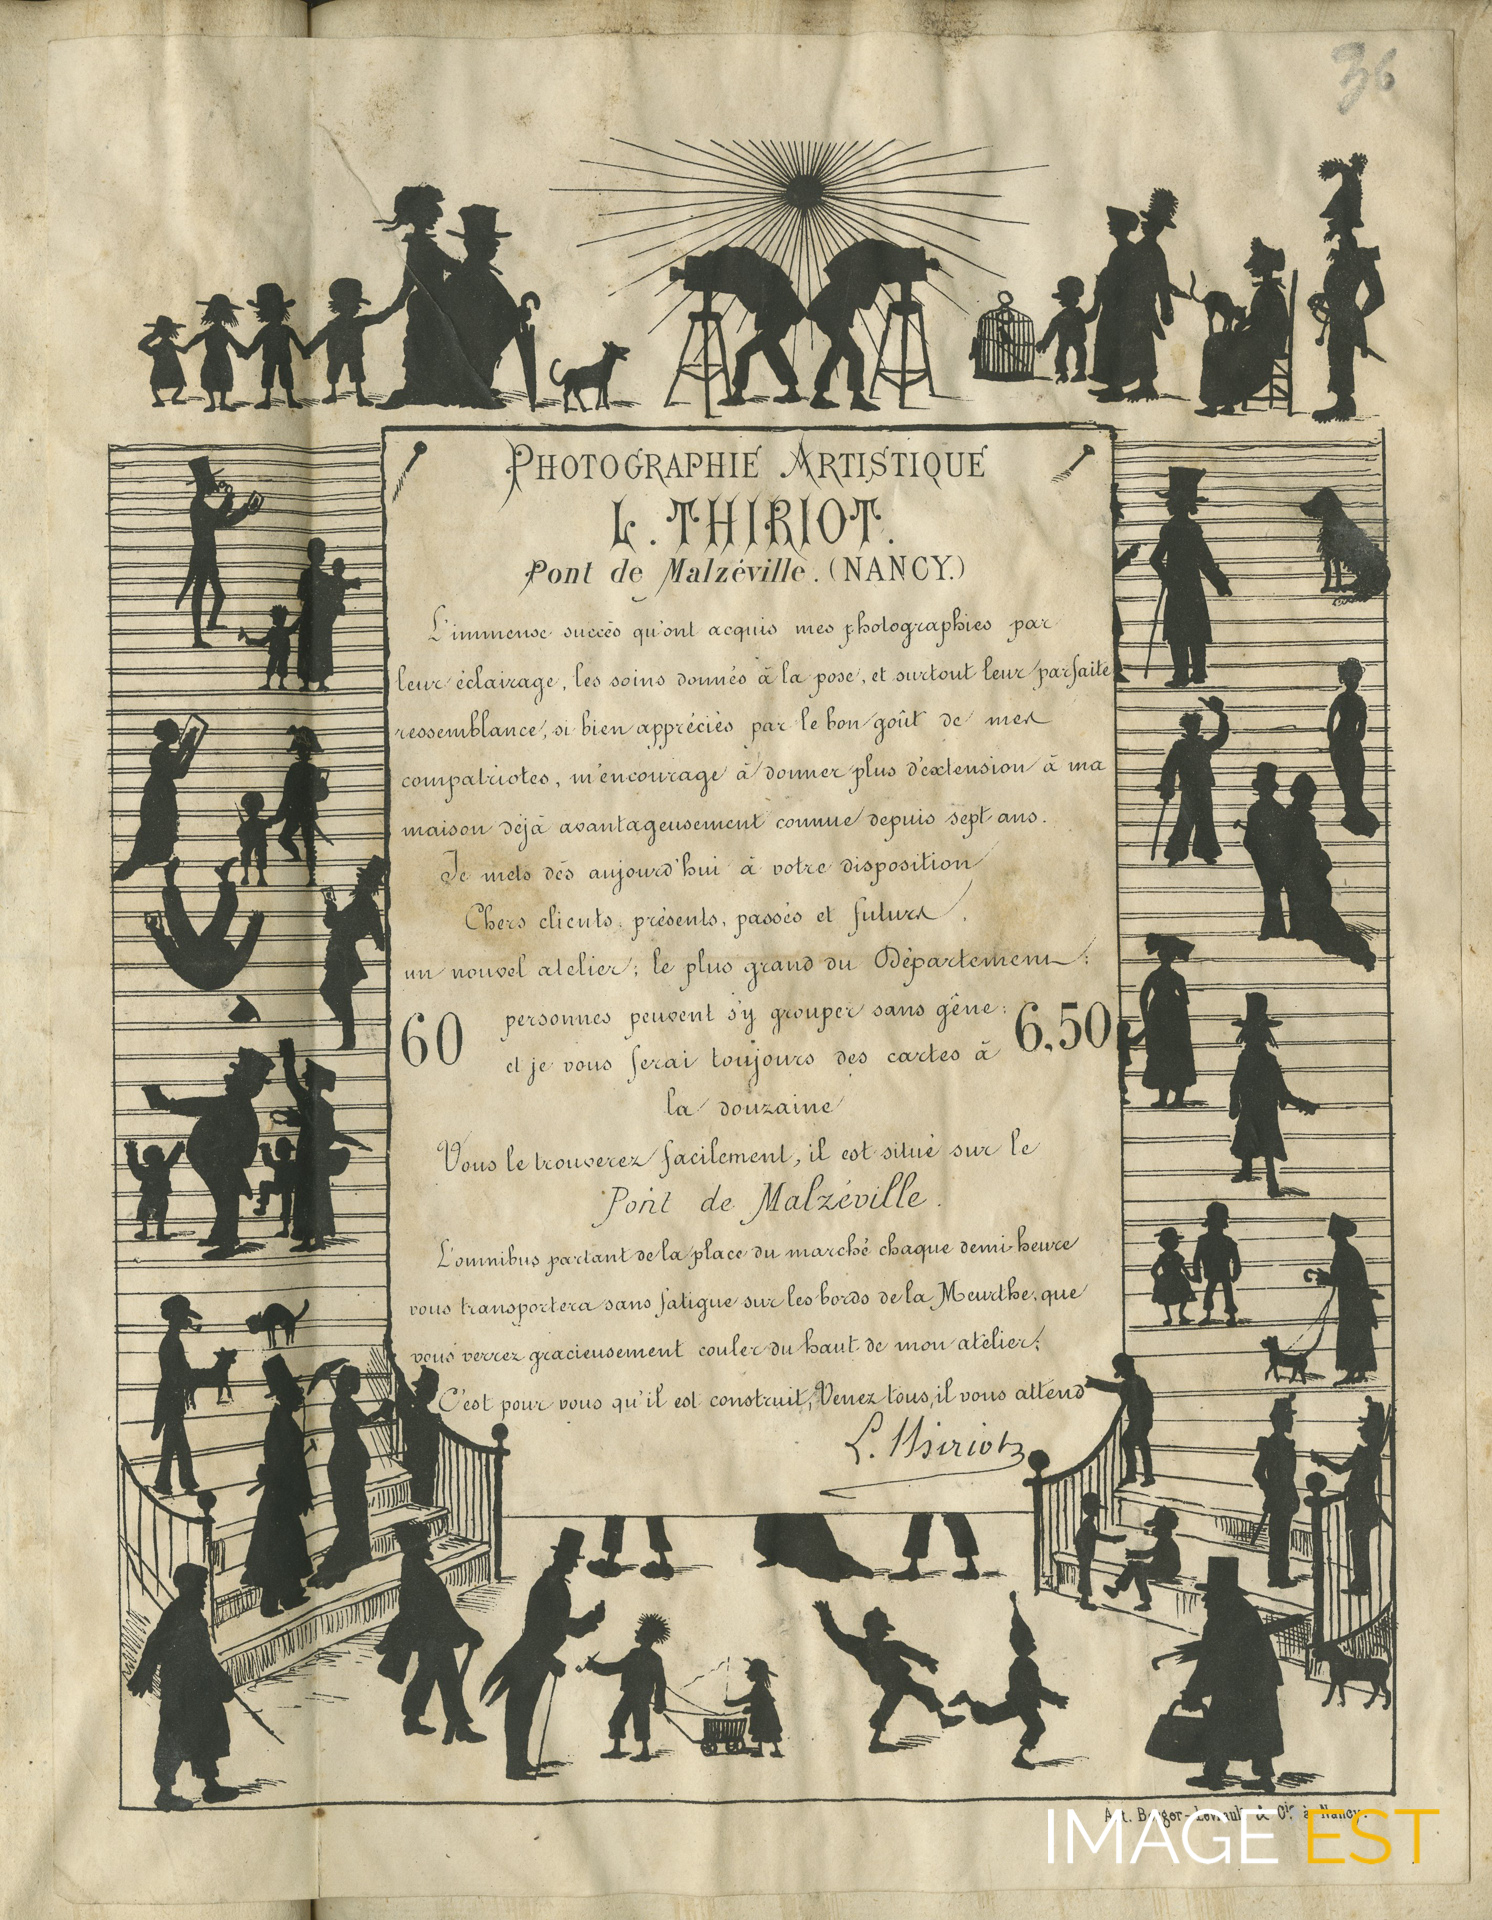 36
PHOTOGRAPHIE ARTISTIQUE
L. THIRIOT.
Pont de Malzéville. (NANCY.)
L'immense succès qu'ont acquis mes photographies par
leur éclairage, les soins donnés à la pose, et surtout leur parfaite
ressemblance, si bien appréciés par le bon goût de mes
compatriotes, m'encourage à donner plus d'extension à ma
maison déjà avantageusement connue depuis sept ans.
Je mets dès aujourd'hui à votre disposition
Chers clients, présents, passés et futurs,
un nouvel atelier; le plus grand du Département;
60 personnes peuvent s'y grouper sans gêne:
et je vous ferai toujours des cartes à 6,50
la douzaine
Vous le trouverez facilement, il est situé sur le
Pont de Malzéville.
L'omnibus partant de la place du marché chaque demi heure
vous transportera sans fatigue sur les bords de la Meurthe, que
vous verrez gracieusement couler du haut de mon atelier;
C'est pour vous qu'il est construit, Venez tous, il vous attend
L. Thiriot
Aut. Berger-Levrault & Cie à Nancy.
IMAGE EST